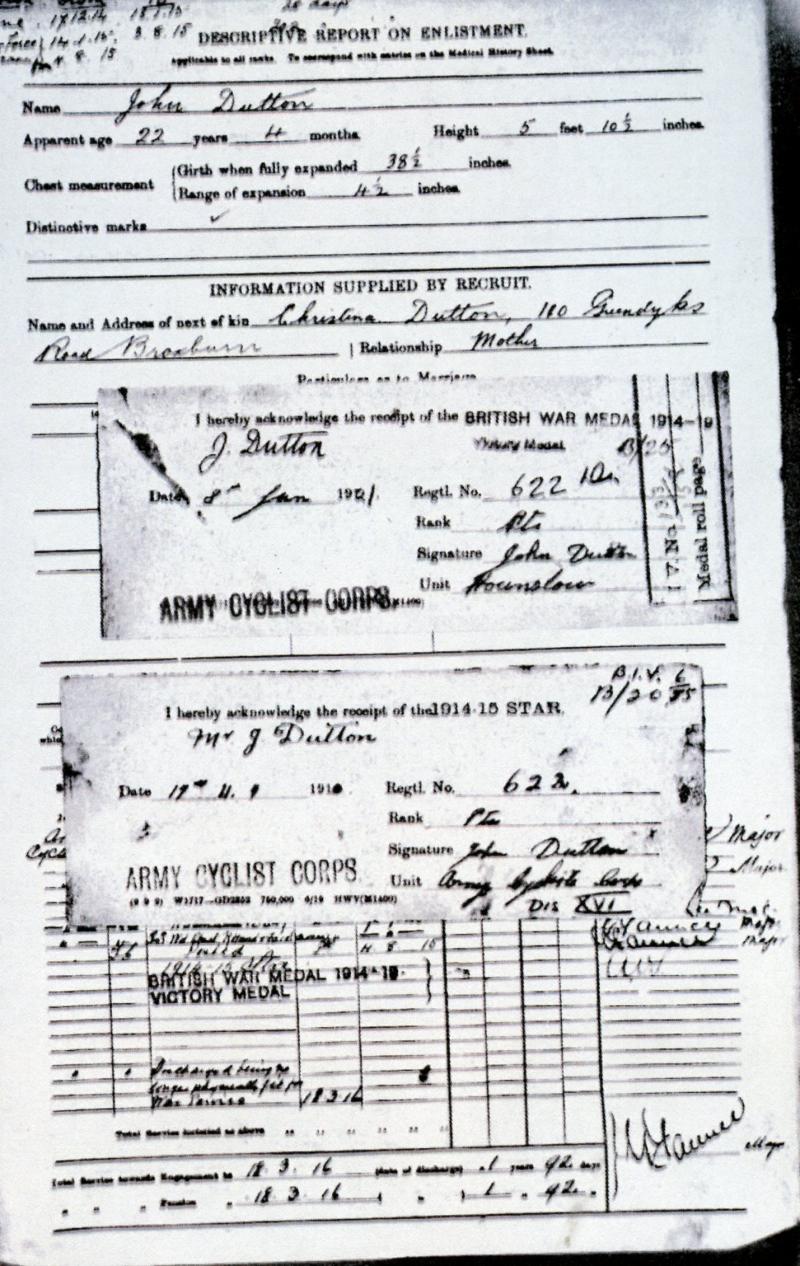 17.12.14
14.1.15 3.8.15
8.15
DESCRIPTIVE REPORT ON ENLISTMENT.
Applicable to all ranks. To correspond with entries on the Medical History Sheet.
Name John Dutton
Apparent age 22 years 4 months. Height 5 feet 10½ inches.
Chest measurement
Girth when fully expanded 38½ inches.
Range of expansion 4½ inches.
Distinctive marks ✓
INFORMATION SUPPLIED BY RECRUIT.
Name and Address of next of kin Christina Dutton, 100
Road Broxburn | Relationship Mother
Particulars as to Marriage
I hereby acknowledge the receipt of the BRITISH WAR MEDAL 1914-19
J. Dutton Victory Medal B/25
Date 8th Jan 1921 Regtl. No. 622
Rank Pte
Signature John Dutton
Unit Hounslow
ARMY CYCLIST CORPS.
I V. No
Medal roll page
B.I.V.
13/20
I hereby acknowledge the receipt of the 1914-15 STAR.
Mr J Dutton
Date 191 Regtl. No. 622.
Rank Pte
Signature John Dutton
ARMY CYCLIST CORPS. Unit Army Cyclist Corps
(9 9 9) W1717—GD2352 750,000 6/19 HWV(M1400)
DIS XVI
Major
Major
Major
Major
4 8 15
BRITISH WAR MEDAL 1914-19
VICTORY MEDAL
Discharged being no
longer physically fit for
War Service 18 3 16
Total Service included as above " " " " " "
Total Service towards Engagement to 18. 3. 16 (date of discharge) 1 years 92 days
" " " Pension " 18 3 16 ( " ) 1 " 92 "
Major